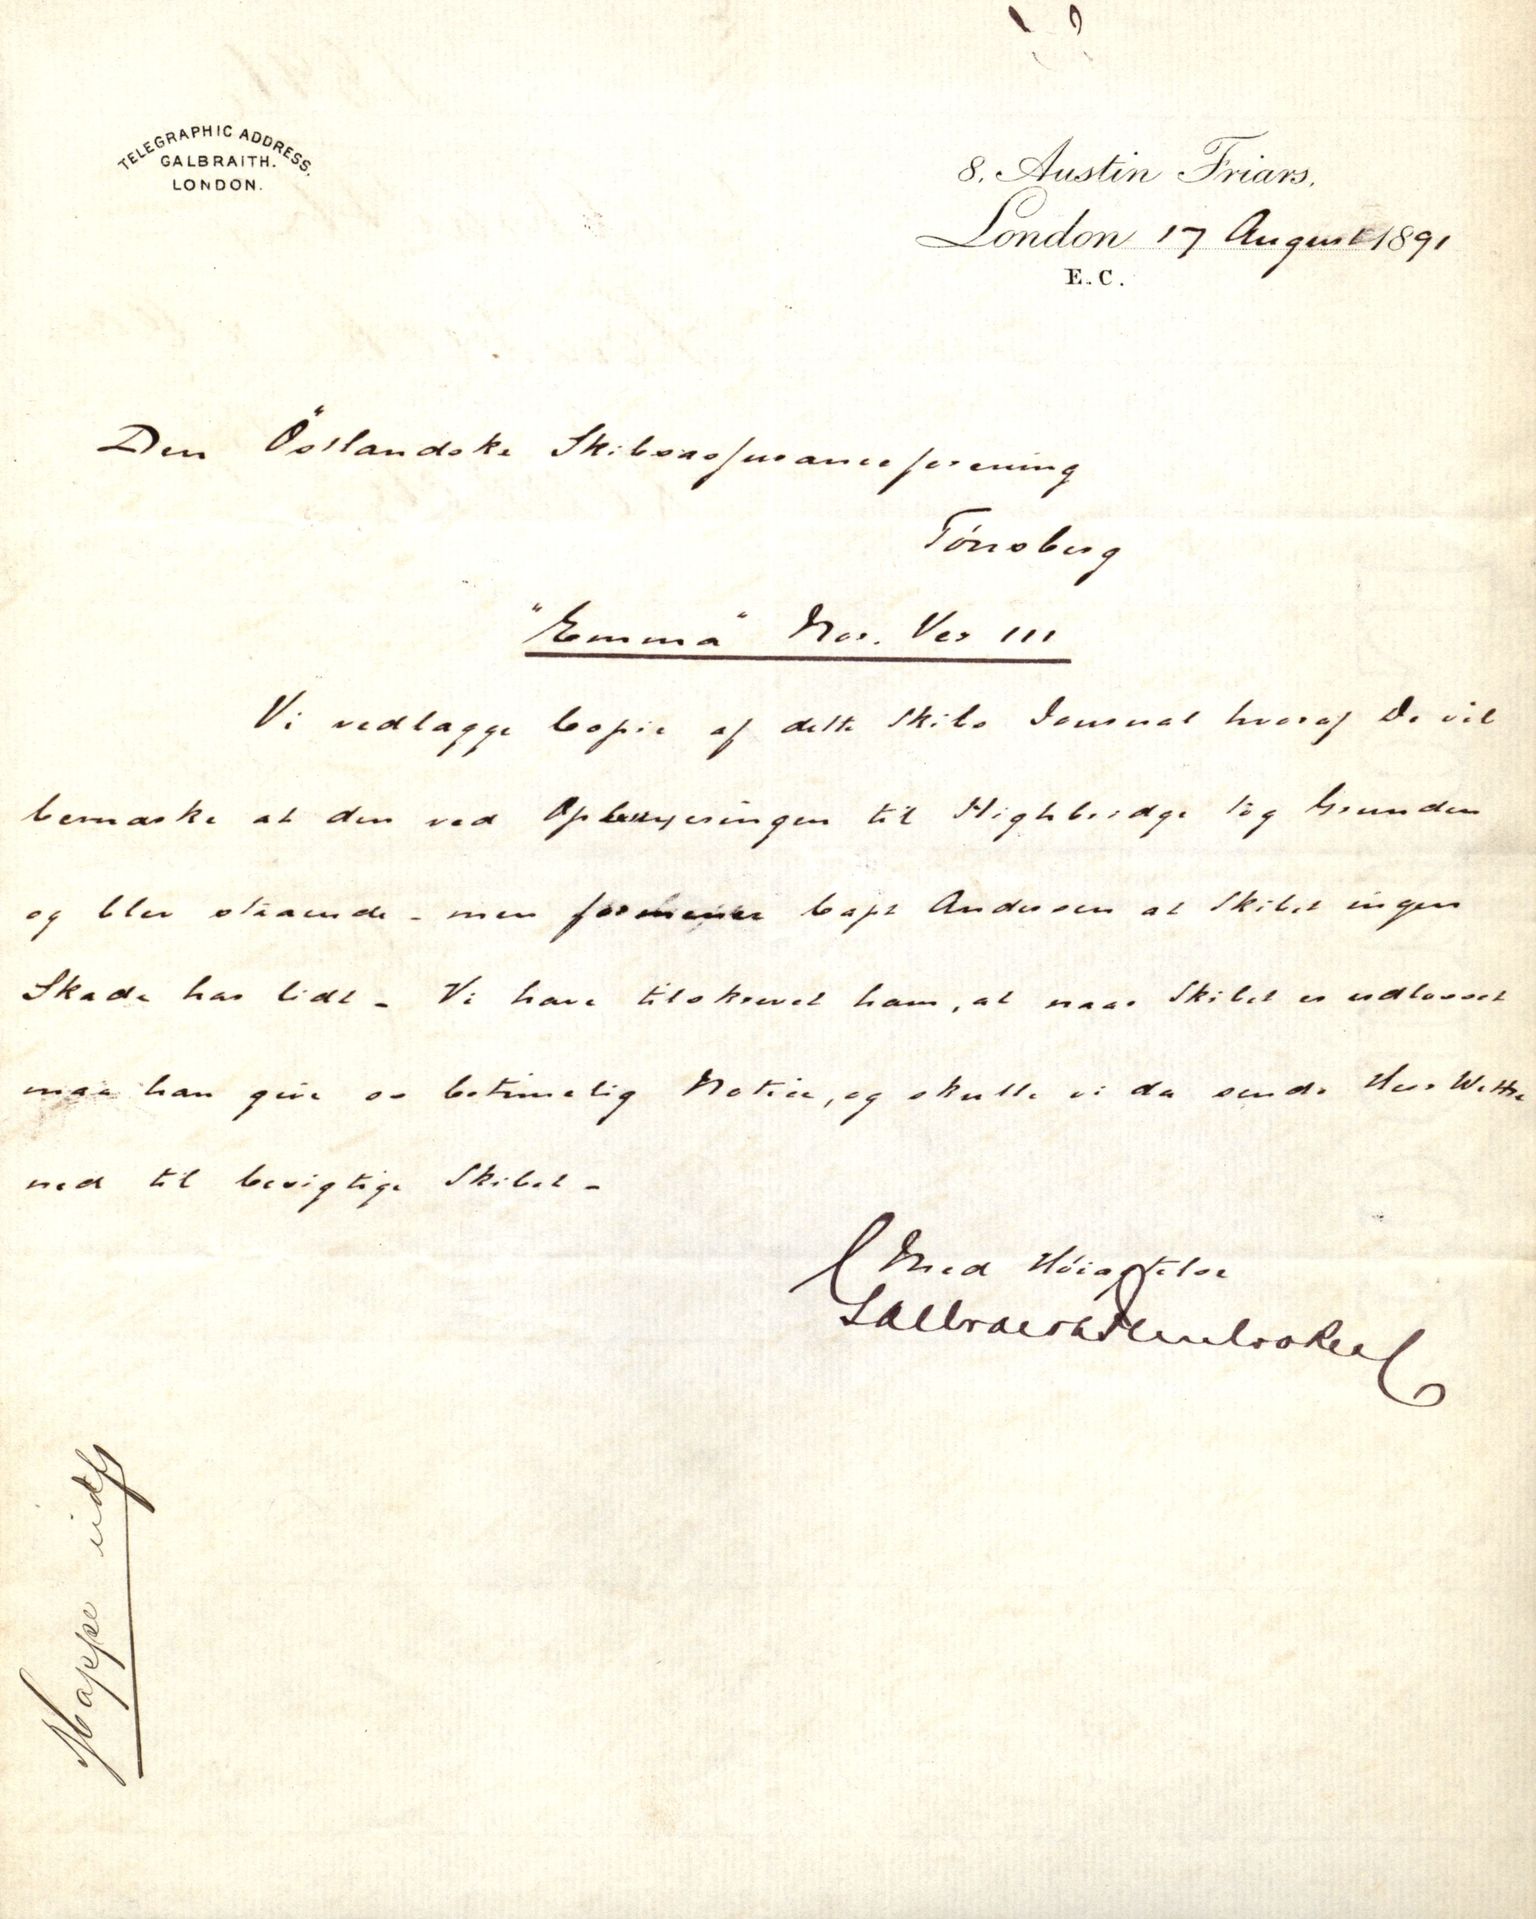 TELEGRAPHIC ADDRESS.
GALBRAITH.
LONDON.
8, Austin Friars,
London 17 August 1891
E.C.
Den Östlandske Skibsassuranceforening
Tönsberg
"Emma" Nor. Ver III
Vi vedlægge Copie af dette Skibs Journal hvoraf De vil
bemærke at den ved Opbuxeringen til Highbridge tog Grunden
og blev staaende - men formener Capt Andersen at Skibet ingen
Skade har lidt - Vi have tilskrevet ham, at naar Skibet er udlosset
maa han give os betimelig Notice, og skulle vi da sende Herr Wettre
ned til besigtige Skibet -
Med Höiagtelse
Galbraith Pembroke &C
Mappe idf